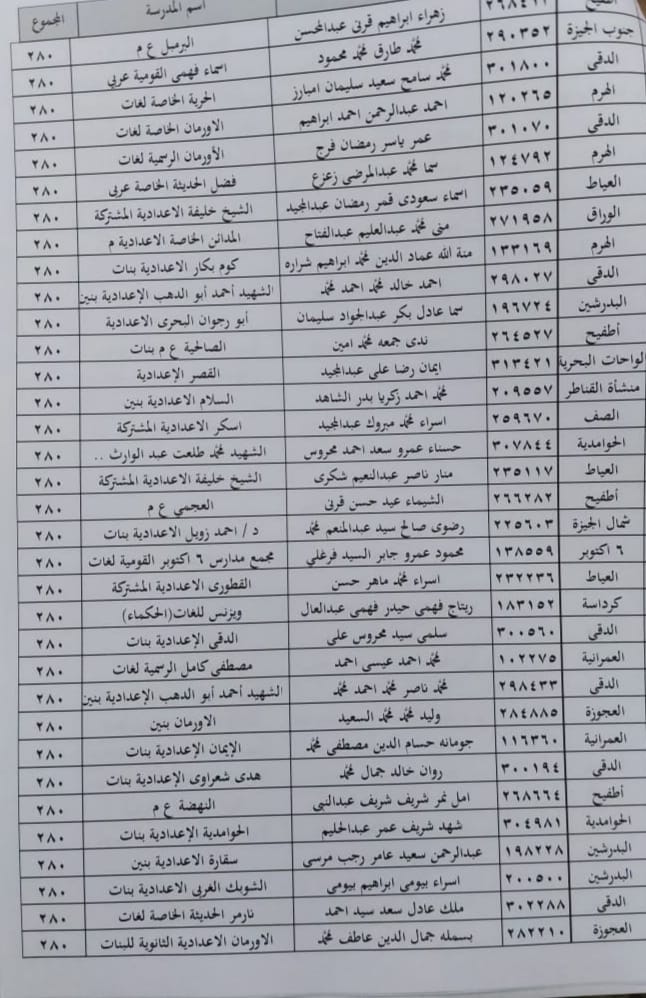 اسم المدرسة المجموع
زهراء ابراهيم قرنى عبدالمحسن البرميل ع م ٢٨٠
جنوب الجيزة ٢٩٠٣٥٢ محمد طارق محمد محمود اسماء فهمى القومية عربى ٢٨٠
الدقى ٣٠١٨٠٠ محمد سامح سعيد سليمان امبارز الحرية الخاصة لغات ٢٨٠
الهرم ١٢٠٢٦٥ احمد عبدالرحمن احمد ابراهيم الاورمان الخاصة لغات ٢٨٠
الدقى ٣٠١٠٧٠ عمر ياسر رمضان فرج الأورمان الرسمية لغات ٢٨٠
الهرم ١٢٤٧٩٢ سما محمد عبدالمرضى زعزع فضل الحديثة الخاصة عربى ٢٨٠
العياط ٢٣٥٠٥٩ اسماء سعودى قمر رمضان عبدالمجيد الشيخ خليفة الاعدادية المشتركة ٢٨٠
الوراق ٢٧١٩٥٨ منى محمد عبدالعليم عبدالفتاح المدائن الخاصة الاعدادية م ٢٨٠
الهرم ١٣٣١٦٩ منة الله عماد الدين محمد ابراهيم شراره كوم بكار الاعدادية بنات ٢٨٠
الدقى ٢٩٨٠٢٧ احمد خالد محمد احمد محمد الشهيد أحمد أبو الدهب الإعدادية بنين ٢٨٠
البدرشين ١٩٦٧٢٤ سما عادل بكر عبدالجواد سليمان أبو رجوان البحرى الاعدادية ٢٨٠
أطفيح ٢٦٤٥٢٧ ندى جمعه محمد امين الصالحية ع م بنات ٢٨٠
الواحات البحرية ٣١٣٤٢١ ايمان رضا على عبدالمجيد القصر الإعدادية ٢٨٠
منشأة القناطر ٢٠٩٥٥٧ محمد احمد زكريا بدر الشاهد السلام الاعدادية بنين ٢٨٠
الصف ٢٥٩٦٧٠ اسراء محمد مبروك عبدالمجيد اسكر الاعدادية المشتركة ٢٨٠
الحوامدية ٣٠٧٨٤٤ حسناء عمرو سعد احمد محروس الشهيد محمد طلعت عبد الوارث .. ٢٨٠
العياط ٢٣٥١١٧ منار ناصر عبدالنعيم شكرى الشيخ خليفة الاعدادية المشتركة ٢٨٠
أطفيح ٢٦٦٢٨٢ الشيماء عيد حسن قرنى العجمي ع م ٢٨٠
شمال الجيزة ٢٢٥٦٠٣ رضوى صالح سيد عبدالمنعم محمد د / احمد زويل الاعدادية بنات ٢٨٠
٦ اكتوبر ١٣٨٥٥٩ محمود عمرو جابر السيد فرغلي مجمع مدارس ٦ اكتوبر القومية لغات ٢٨٠
العياط ٢٣٢٢٣٦ اسراء محمد ماهر حسن القطورى الاعدادية المشتركة ٢٨٠
كرداسة ١٨٣١٥٢ ريتاج فهمى حيدر فهمى عبدالعال ويزنس للغات(الحكماء) ٢٨٠
الدقى ٣٠٠٥٦٠ سلمى سيد محروس على الدقى الإعدادية بنات ٢٨٠
العمرانية ١٠٢٢٧٥ محمد احمد عيسى احمد مصطفى كامل الرسمية لغات ٢٨٠
الدقى ٢٩٨٤٣٣ محمد ناصر محمد احمد محمد الشهيد أحمد أبو الدهب الإعدادية بنين ٢٨٠
العجوزة ٢٨٤٨٨٥ وليد محمد محمد السعيد الاورمان بنين ٢٨٠
العمرانية ١١٦٣٦٠ جومانه حسام الدين مصطفى محمد الإيمان الإعدادية بنات ٢٨٠
الدقى ٣٠٠١٩٤ روان خالد جمال محمد هدى شعراوى الإعدادية بنات ٢٨٠
أطفيح ٢٦٨٦٦٤ امل نمر شريف شريف عبدالنبى النهضة ع م ٢٨٠
الحوامدية ٣٠٤٩٨١ شهد شريف عمر عبدالحليم الحوامدية الإعدادية بنات ٢٨٠
البدرشين ١٩٨٢٢٨ عبدالرحمن سعيد عامر رجب مرسى سقارة الاعدادية بنين ٢٨٠
البدرشين ٢٠٠٥٠٠ اسراء بيومى ابراهيم بيومى الشوبك الغربى الاعدادية بنات ٢٨٠
الدقى ٣٠٢٢٨٨ ملك عادل سعد سيد احمد نارمر الحديثة الخاصة لغات ٢٨٠
العجوزة ٢٨٢٢١٠ بسمله جمال الدين عاطف محمد الاورمان الاعدادية الثانوية للبنات ٢٨٠